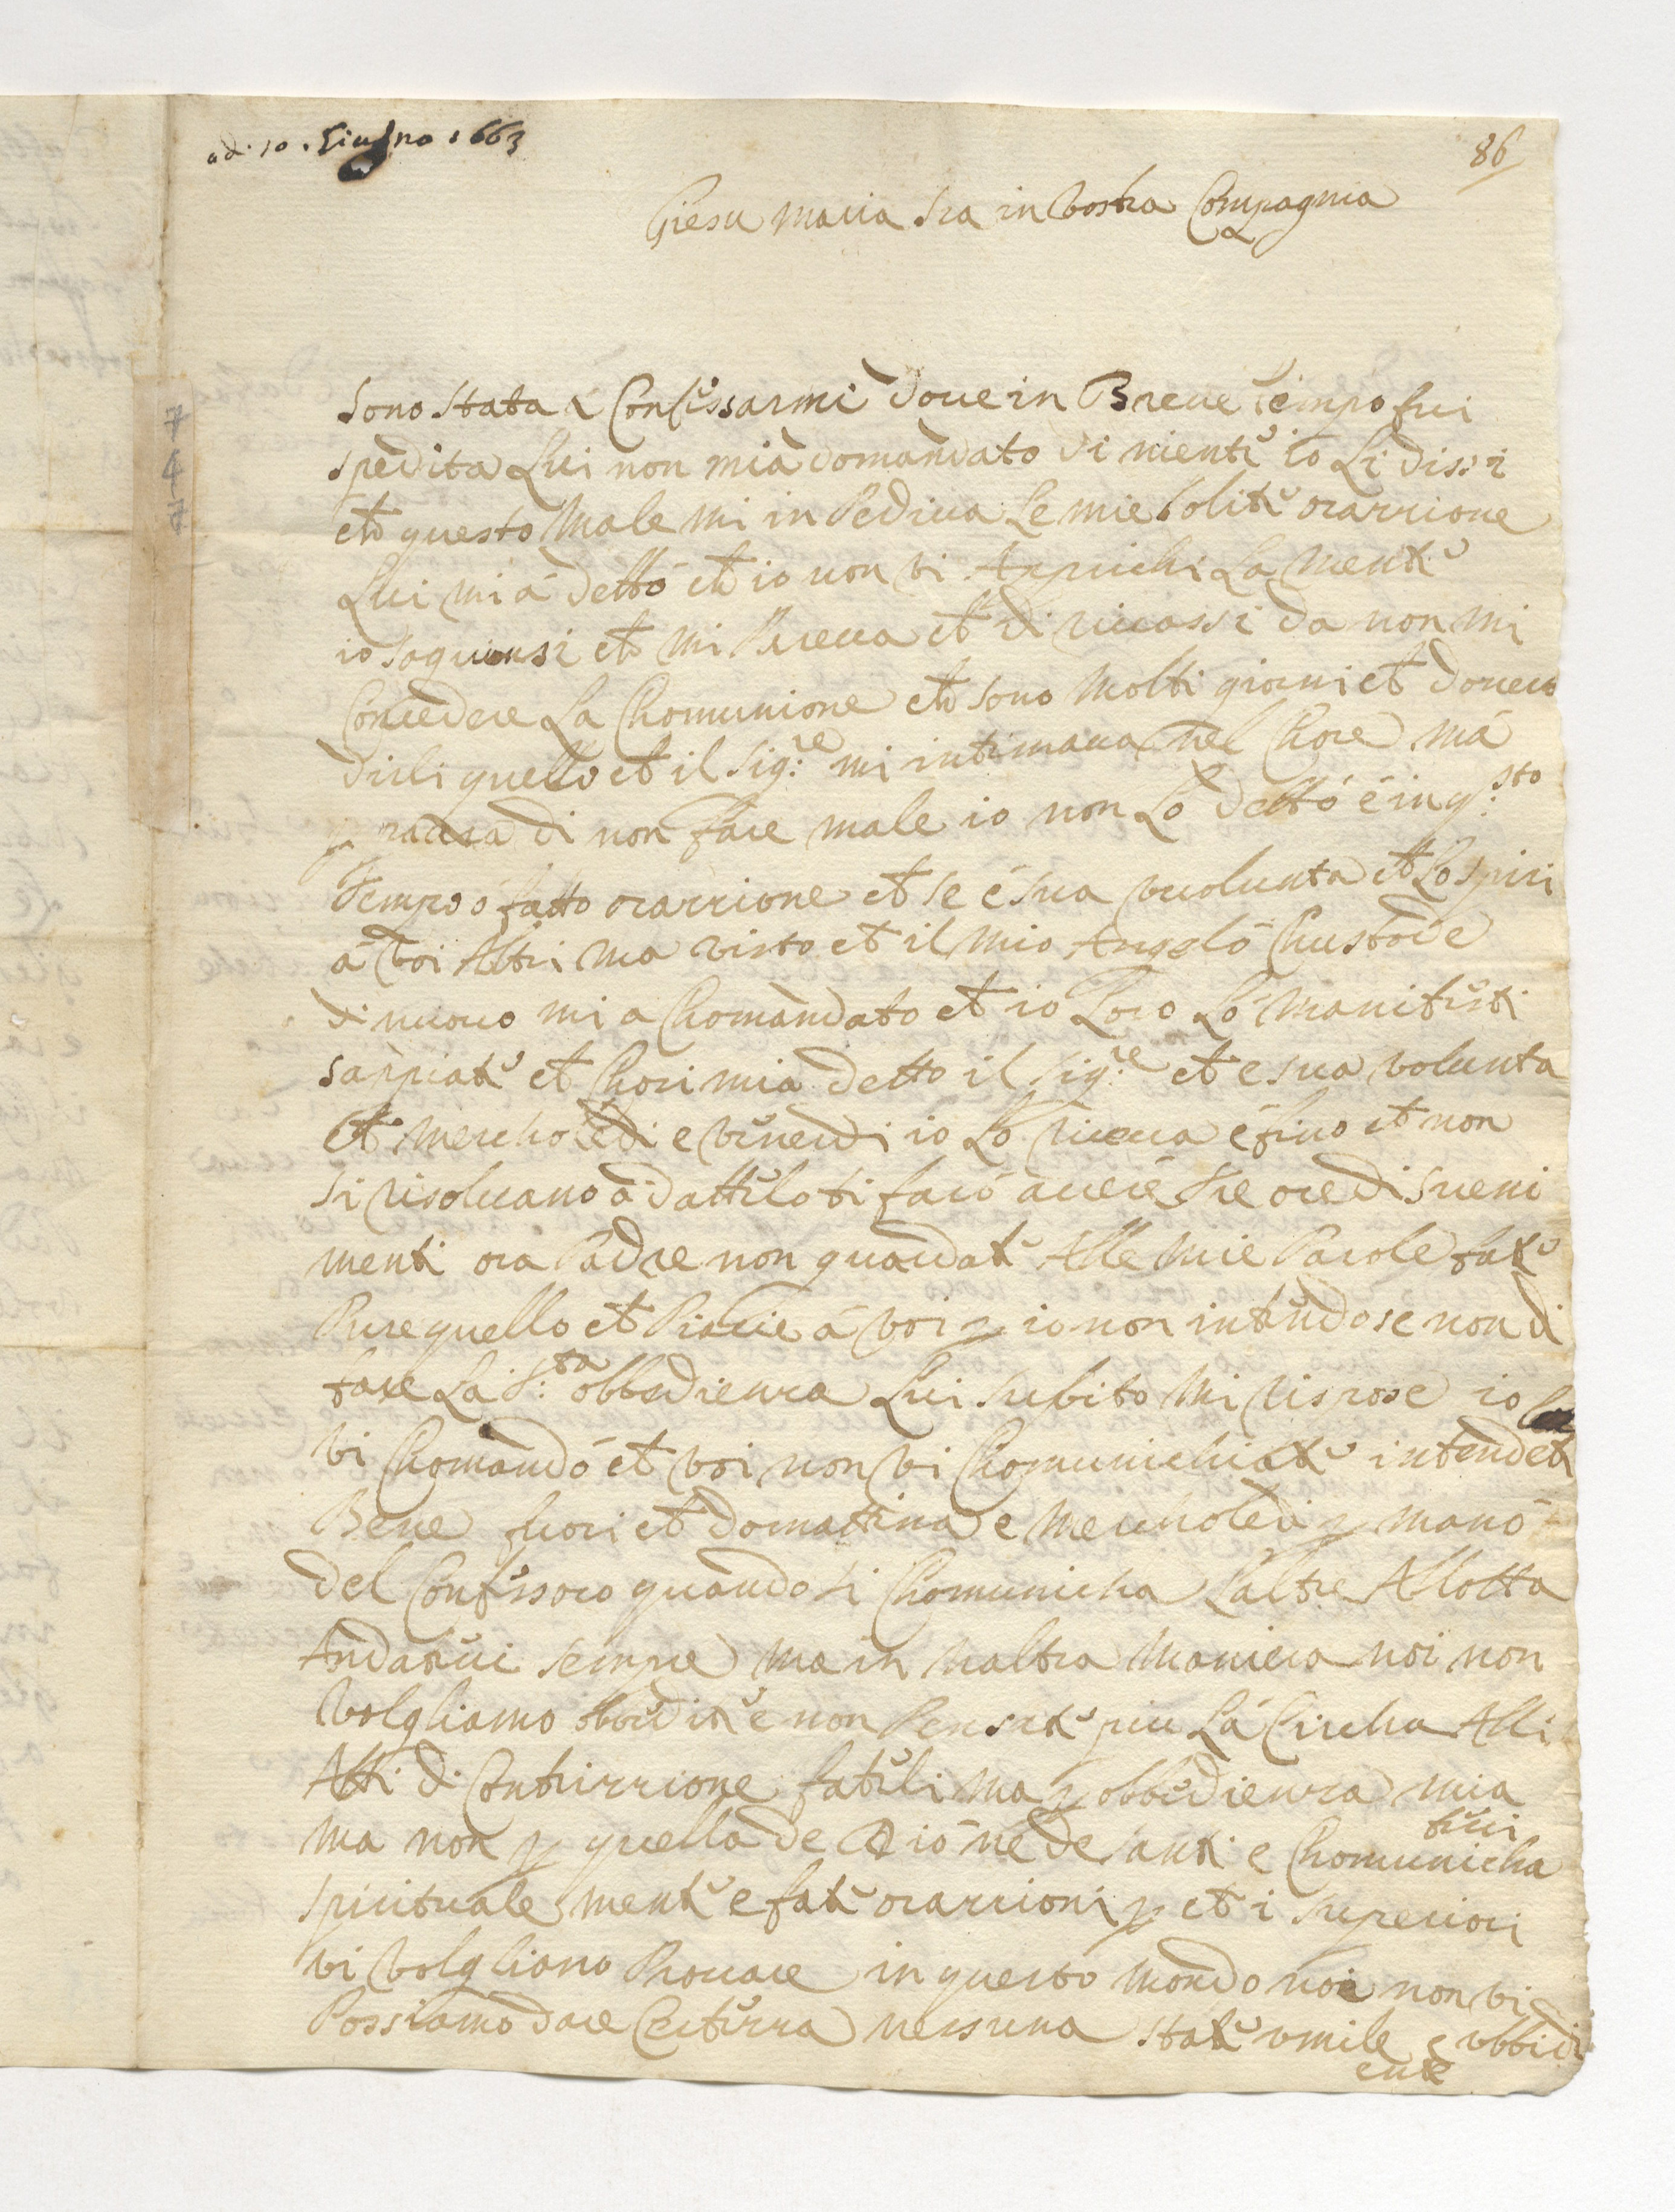 adi 10. Giugno 1663
86
Giesu maria sia in vostra Compagnia
747
sono stata a Confissarmi doue in Breue tempo fui
spedita Lui non mia domandato di niente io Li dissi
che questo Male mi in Pediua Le mie solite orarrione
Lui mi á detto che io non vi Appichi La mente
io sogiunsi che mi Pareua che di
Concedere La Chomunione che sono Molti giorni che doueuo
dirli quello che il sig:re mi intimaua nel Chore ma
paura di non fare male io non Lo detto é in q:sto
Tempo ó fatto orarrione che se é sua vuolunta che Lo spiri
á Voi Altri ma visto che il mio Angelo Chustode
di nuouo mi a Chomandato che io Loro Lo Manifesti
sappiate che Chosi mia detto il sig:re che e sua volunta
che Merchóledi e venerdi io Lo riceua é fino che non
si risoluano á dattelo ti faró auere tre ore di sueni
menti ora Padre non guardate Alle Mie Parole fate
Pure quello che Piacie á Voi p io non intendo se non di
fare La s:ta obbedienza Lui subito Mi rispose io
vi Chomandó che voi non vi Chomunichiate intendete
Bene fuori che domattina e Merchóledi p mano
del Confissoro quando si Chomunicha L'altre Allotta
Andateui sempre ma in naltra Maniera noi non
volgliamo obbidite e non Pensate piu La Circha Alli
Atti di Contrirrione fateli ma p obbedienza mia
ma non p quella de Dio ne de santi e Chomunicha
teui
spirituale mente e fate orarrioni p che i superiori
vi volgliano Prouare in questo Mondo noi non vi
Possiamo dare Certerra nessuna state vmile e vbbidi
ente